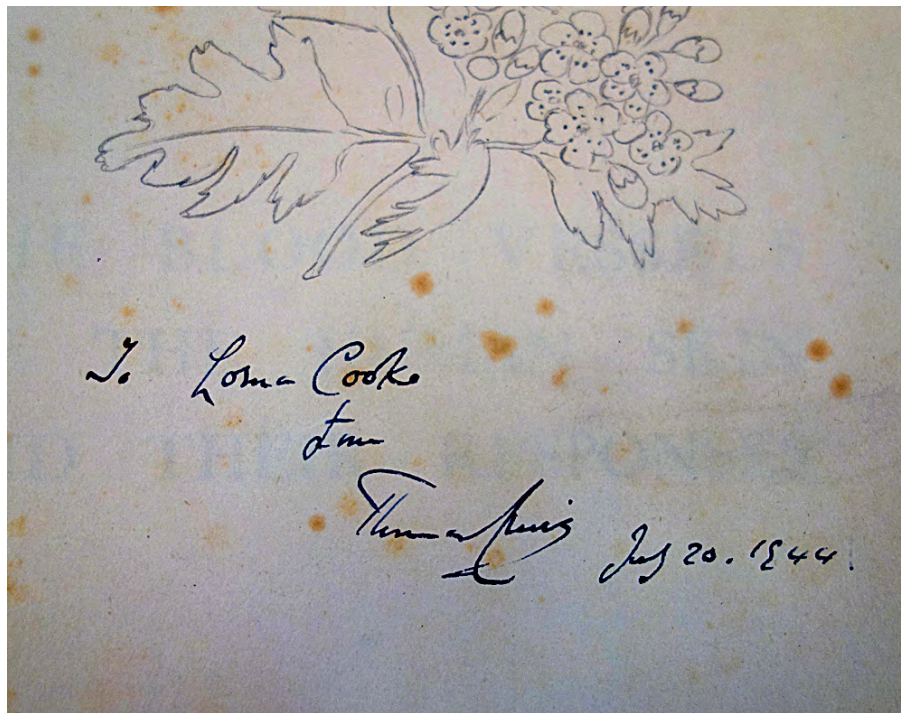 To Lorna Cooke
from
Thomas July 20. 1944.